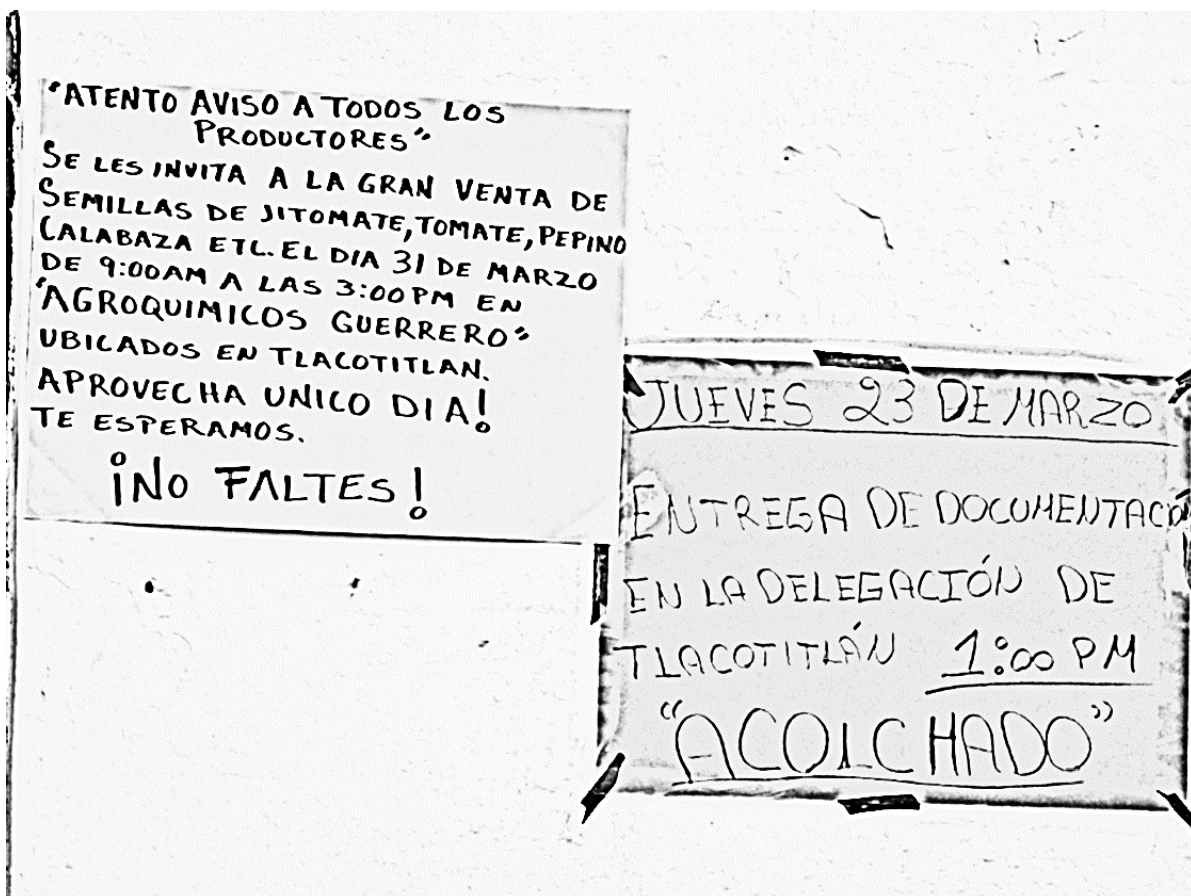 "ATENTO AVISO A TODOS LOS
PRODUCTORES"
SE LES INVITA A LA GRAN VENTA DE
SEMILLAS DE JITOMATE, TOMATE, PEPINO
CALABAZA ETC. EL DIA 31 DE MARZO
DE 9:00AM A LAS 3:00PM EN
"AGROQUIMICOS GUERRERO"
UBICADOS EN TLACOTITLAN.
APROVECHA UNICO DIA!
TE ESPERAMOS.
¡NO FALTES!
JUEVES 23 DE MARZO
ENTREGA DE DOCUMENTACIÓ
EN LA DELEGACIÓN DE
TLACOTITLÁN 1:00 PM
"ACOLCHADO"